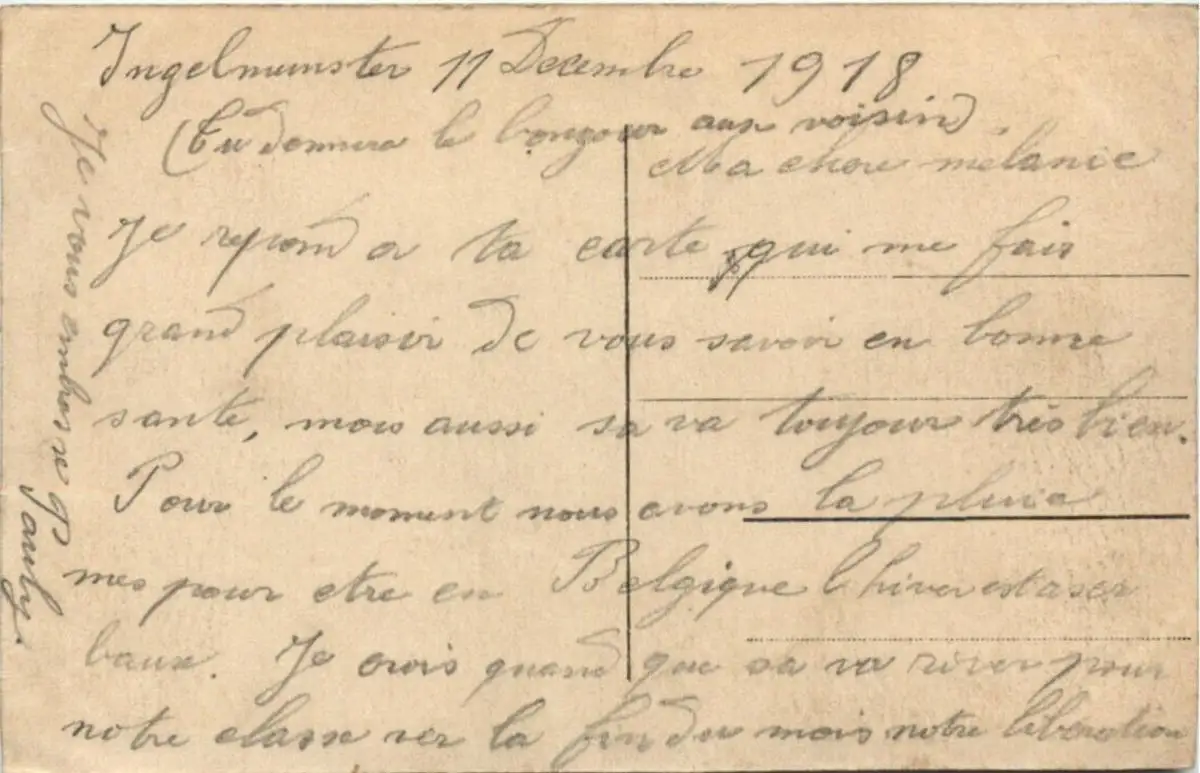 Ingelmunster 11 Decembre 1918
(Tu donnera le bongour aux voisin).
Ma chere mélanie
Je repond a ta carte qui me fais
grand plaisir de vous savoir en bonne
sante, mois aussi sa va toujour très bien.
Pour le moment nous avons la pluie
mes pour etre en Belgique l'hiver est aser
baux. Je crois quand que sa va river pour
notre classe ver la fin du mois notre libération
Je vous embrasse Pauly.